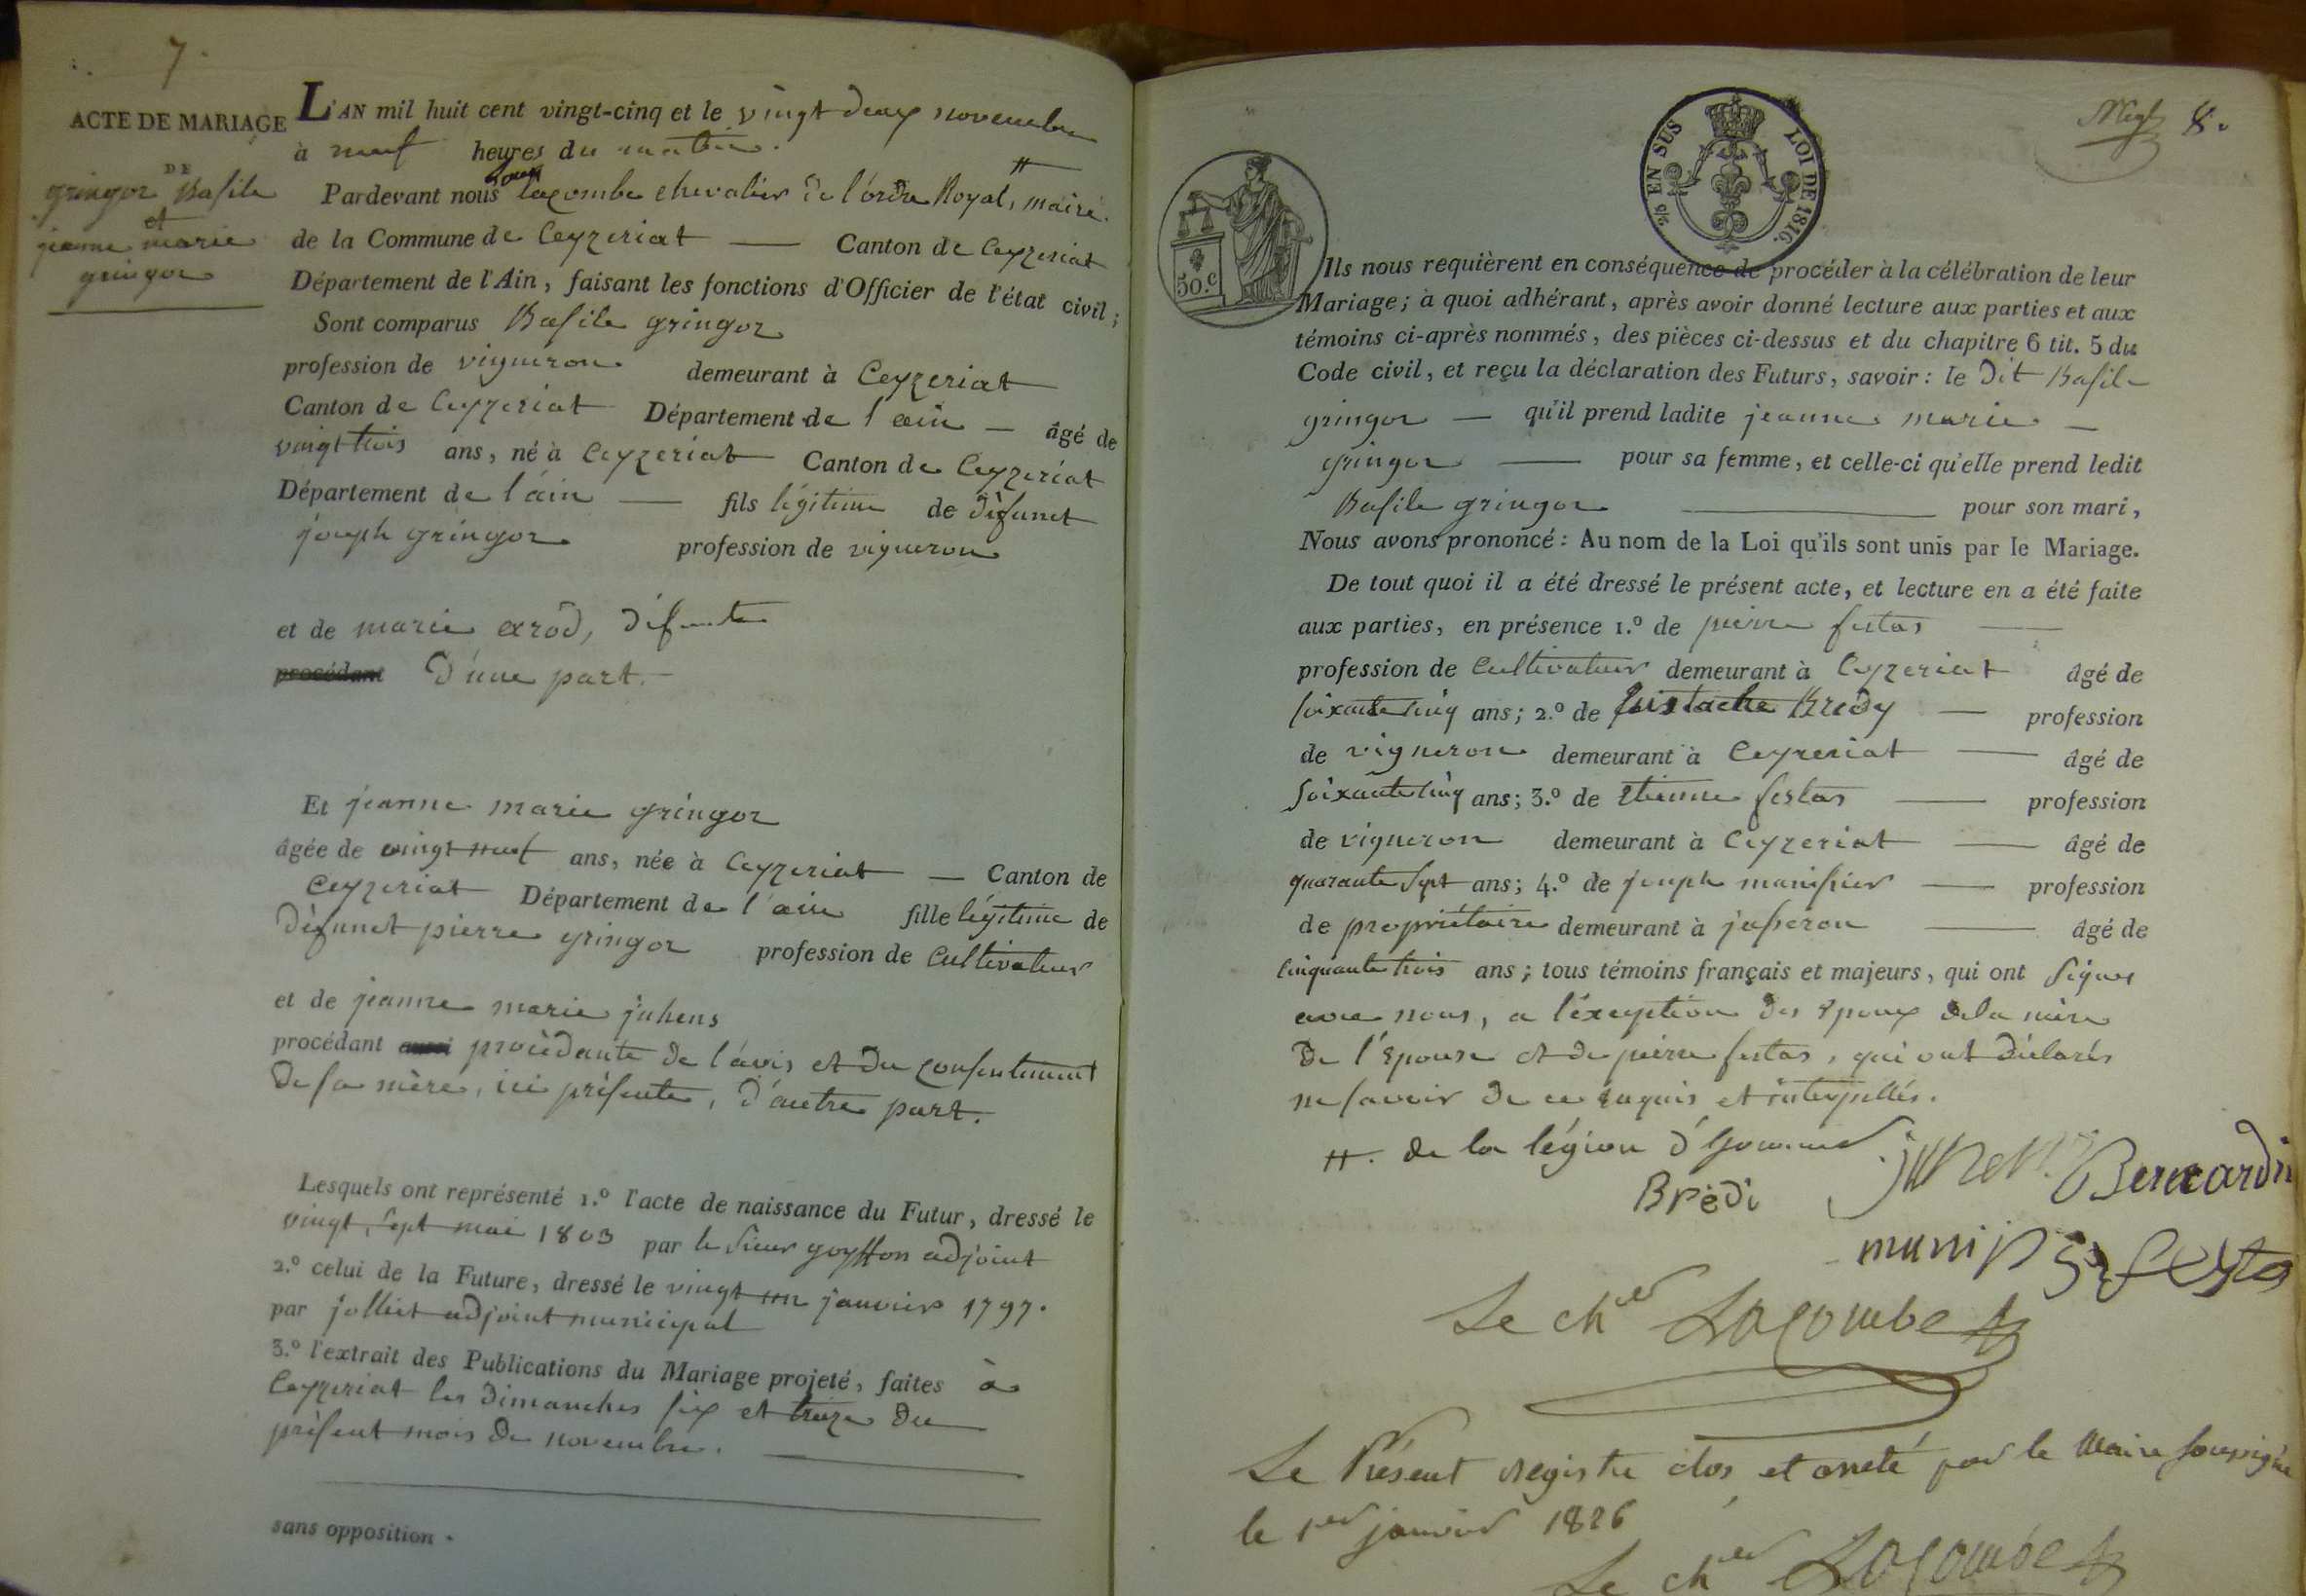 7.
ACTE DE MARIAGE
DE
gringoz Basile
et
jeanne marie
gringoz
L'AN mil huit cent vingt-cinq et le vingt deux novembre
à neuf heures du matin.
Pardevant nous Lacombe chevalier de l'ordre Royal, maire
de la Commune de Ceyzeriat — Canton de Ceyzeriat
Département de l'Ain, faisant les fonctions d'Officier de l'état civil;
Sont comparus Basile gringoz
profession de vigneron demeurant à Ceyzeriat
Canton de Ceyzeriat Département de l'ain — âgé de
vingt trois ans, né à Ceyzeriat Canton de Ceyzeriat
Département de l'ain — fils légitime de défunct
joseph gringoz profession de vigneron
et de marie exrod, défunte
procédant D'une part.
Et jeanne marie gringoz
âgée de vingt neuf ans, née à Ceyzeriat — Canton de
Ceyzeriat Département de l'ain fille légitime de
défunct pierre gringoz profession de Cultivateur
et de jeanne marie juhens
procédant aussi procèdante de l'avis et du consentement
de sa mère, ici présente, d'autre part.
Lesquels ont représenté 1.º l'acte de naissance du Futur, dressé le
vingt, sept mai 1803 par le sieur goyffon adjoint
2.º celui de la Future, dressé le vingt un janvier 1797.
par jolliet adjoint municipal
3.º l'extrait des Publications du Mariage projeté, faites à
Ceyzeriat les dimanches six et treize du
présent mois de novembre.
sans opposition.
8.
2/5 EN SUS
LOI DE 1816.
50.c
Ils nous requièrent en conséquence de procéder à la célébration de leur
Mariage; à quoi adhérant, après avoir donné lecture aux parties et aux
témoins ci-après nommés, des pièces ci-dessus et du chapitre 6 tit. 5 du
Code civil, et reçu la déclaration des Futurs, savoir: le dit Basile
gringoz — qu'il prend ladite jeanne marie —
gringoz — pour sa femme, et celle-ci qu'elle prend ledit
Basile gringoz — pour son mari,
Nous avons prononcé: Au nom de la Loi qu'ils sont unis par le Mariage.
De tout quoi il a été dressé le présent acte, et lecture en a été faite
aux parties, en présence 1.º de pierre festas —
profession de Cultivateur demeurant à Ceyzeriat âgé de
soixante cinq ans; 2.º de Eustache Bredy — profession
de vigneron demeurant à Ceyzeriat — âgé de
soixante cinq ans; 3.º de Etienne festas — profession
de vigneron demeurant à Ceyzeriat — âgé de
quarante sept ans; 4.º de joseph manissier — profession
de propriétaire demeurant à jasseron — âgé de
cinquante trois ans; tous témoins français et majeurs, qui ont signé
avec nous, a l'éxeption des Epoux de la mère
de l'Epouse et de pierre festas, qui ont déclarés
ne savoir de ce enquis et interpellés.
#. de la légion d'honneur
Brèdi Bernardin
festas
Le ch.er Lacombe
Le Présent registre clos et arreté par le Maire soussigné
le 1er janvier 1826
Le ch.er Lacombe